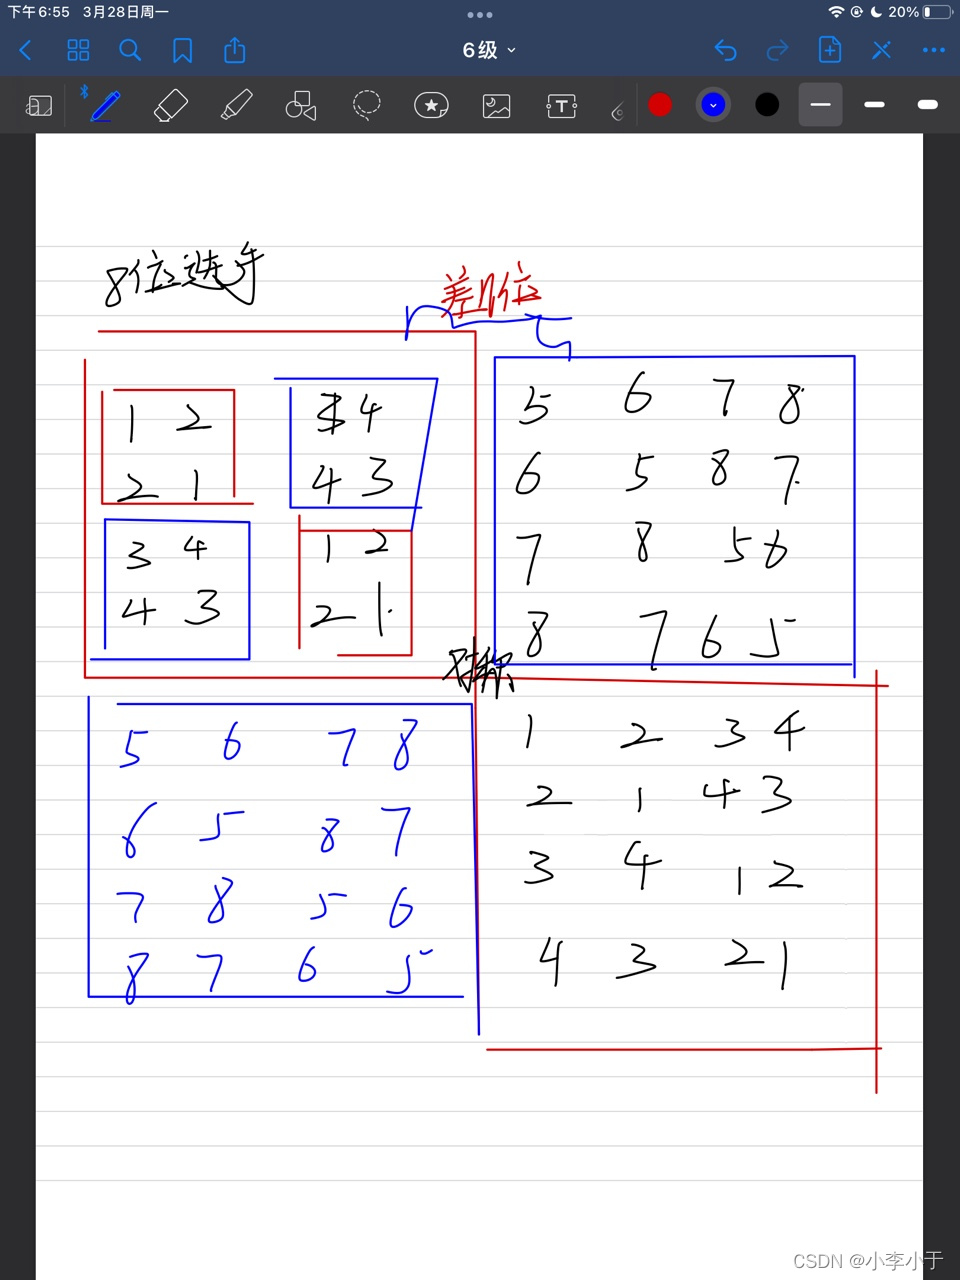 下午6:55 3月28日周一
20%
6级
8位选手
差几位
1 2 4
2 1 4 3
3 4 1 2
4 3 2 1
5 6 7 8
6 5 8 7
7 8 5 6
8 7 6 5
对称
5 6 7 8
6 5 8 7
7 8 5 6
8 7 6 5
1 2 3 4
2 1 4 3
3 4 1 2
4 3 2 1
CSDN @小李小于